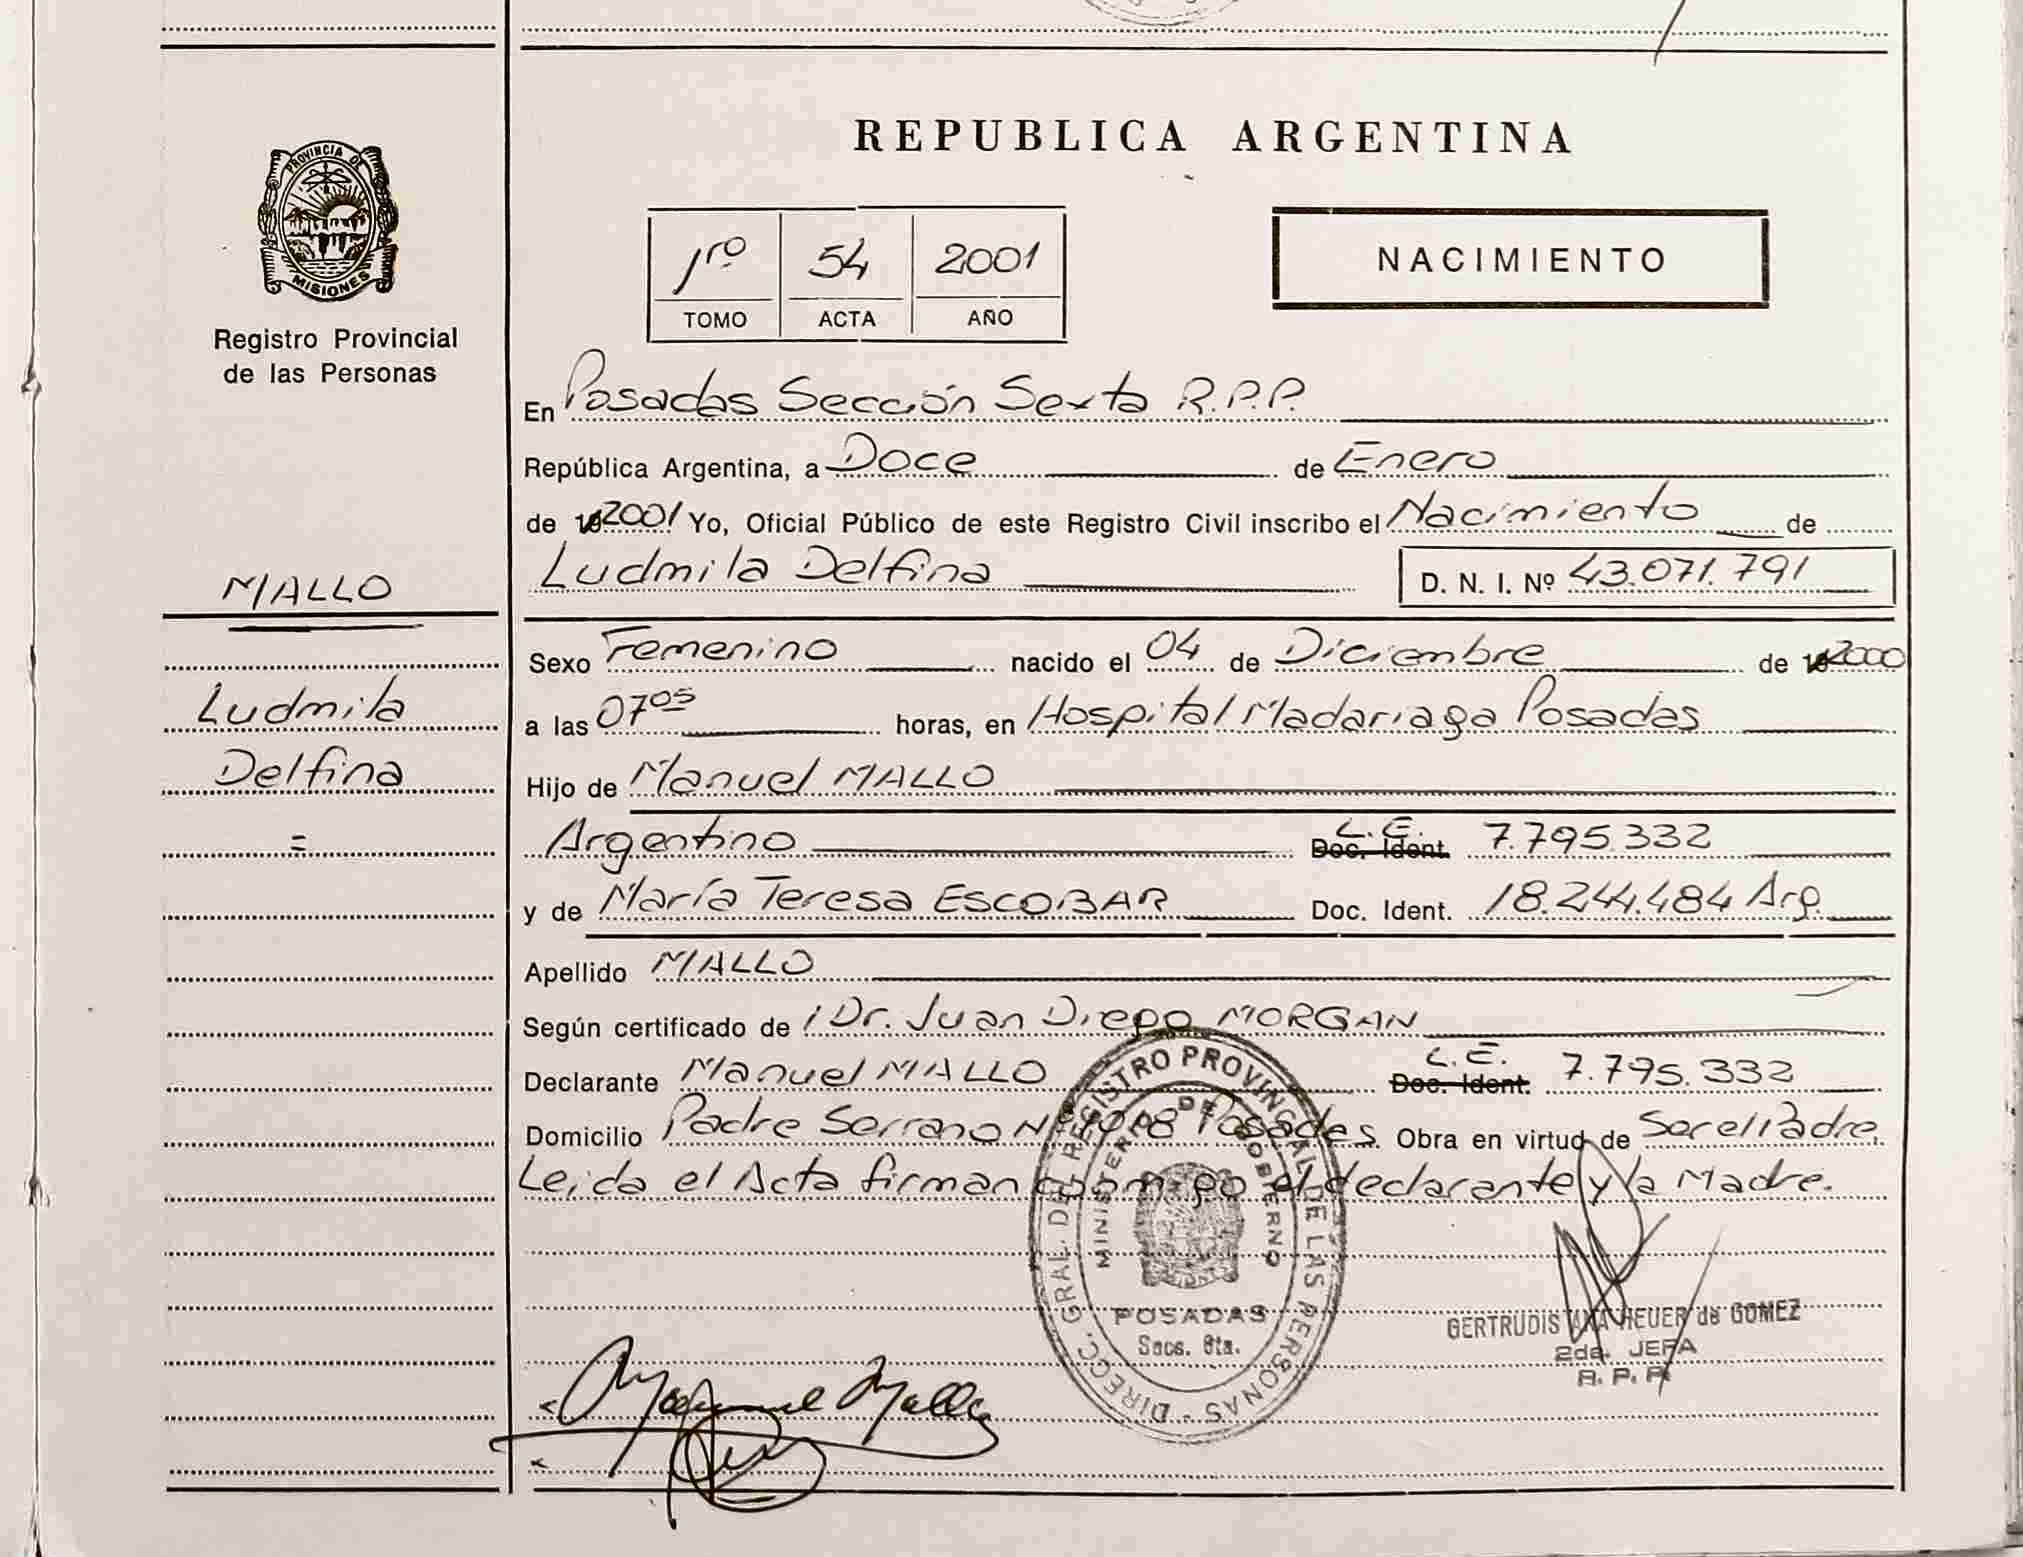 PROVINCIA DE
MISIONES
Registro Provincial
de las Personas
MALLO
Ludmila
Delfina
=
REPUBLICA ARGENTINA
1ro 54 2001
TOMO ACTA AÑO
NACIMIENTO
En Posadas Sección Sexta R.P.P.
República Argentina, a Doce de Enero
de 2001 Yo, Oficial Público de este Registro Civil inscribo el Nacimiento de
Ludmila Delfina D. N. I. Nº 43.071.791
Sexo Femenino nacido el 04 de Diciembre de 2000
a las 07 05 horas, en Hospital Madariaga Posadas
Hijo de Manuel MALLO
Argentino Doc. Ident. L.E. 7.795.332
y de María Teresa ESCOBAR Doc. Ident. 18.244.484 Arg.
Apellido MALLO
Según certificado de Dr. Juan Diego MORGAN
Declarante Manuel MALLO Doc. Ident. L.E. 7.795.332
Domicilio Padre Serrano Nº Posadas. Obra en virtud de Ser el Padre.
Leida el Acta firman conmigo el declarante y la Madre.
DIRECC. GRAL. DEL REGISTRO PROVINCIAL DE LAS PERSONAS -
MINISTERIO DE GOBIERNO
POSADAS
Secs. 6ta.
GERTRUDIS ANA HEUER de GOMEZ
2da. JEFA
R. P. P.
Manuel Mallo